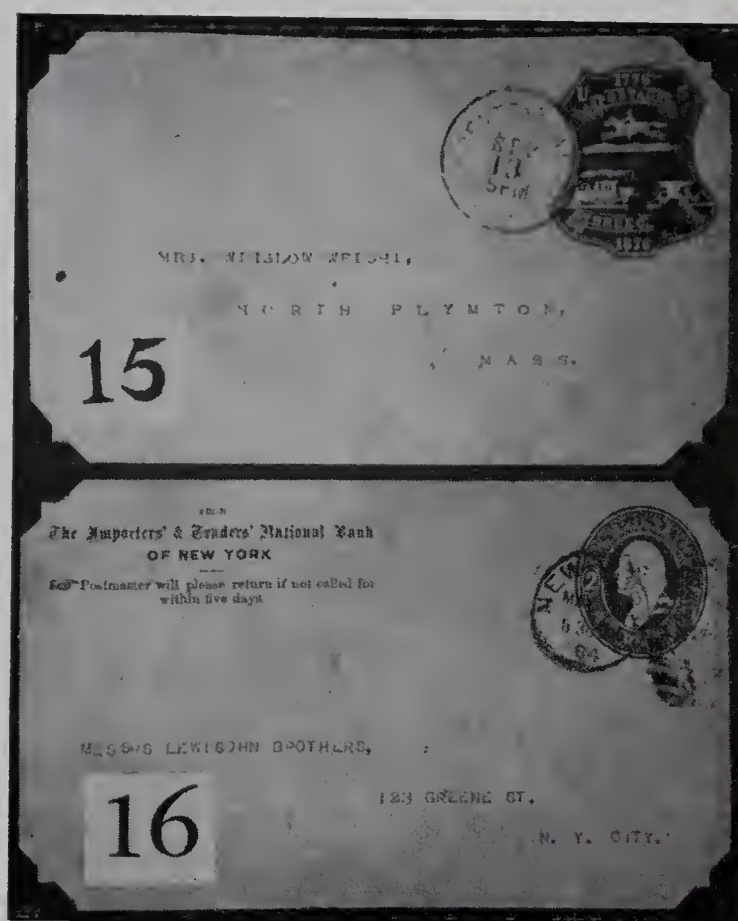 1776
U S
1876
SEP
13
5 PM
MRS. WINSLOW WRIGHT,
NORTH PLYMTON,
MASS.
15
FROM
The Importers' & Traders' National Bank
OF NEW YORK
Postmaster will please return if not called for
within five days.
NEW
84
MESSRS LEWISOHN BROTHERS,
123 GREENE ST.
N. Y. CITY.
16